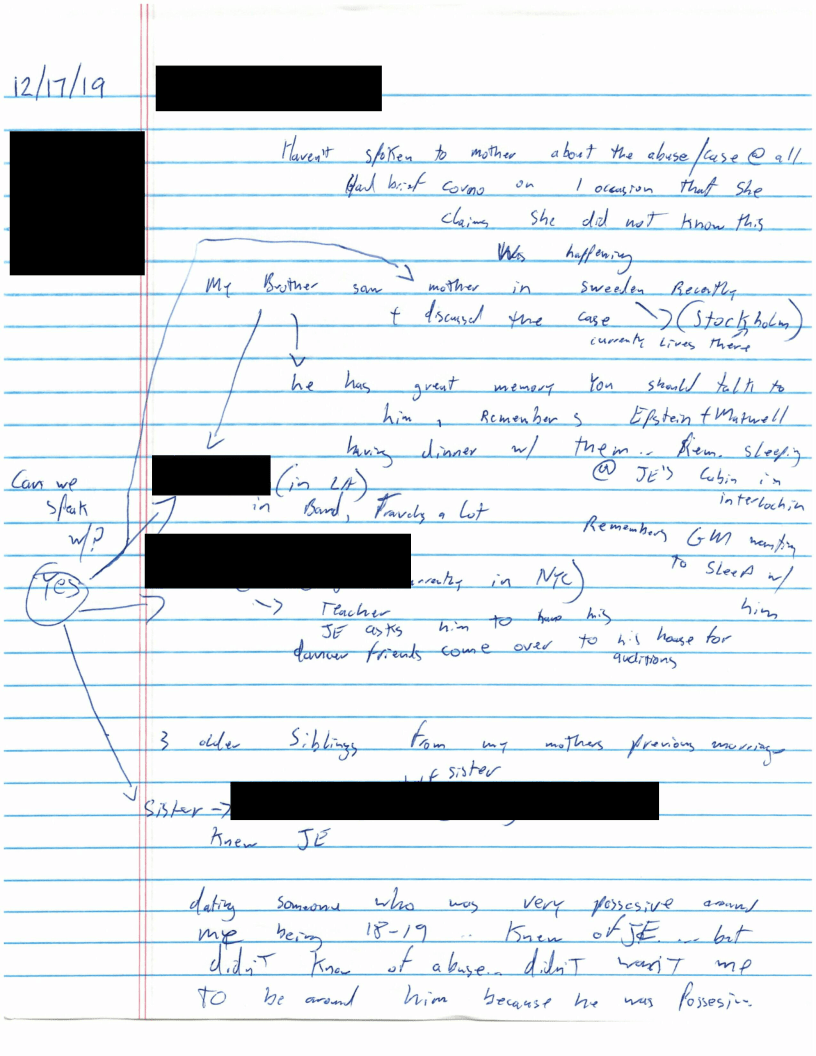 12/17/19
Haven't spoken to mother about the abuse/case @ all
Had brief convo on 1 occasion that she
claims she did not know this
was happening
My Brother saw mother in Sweden Recently
+ discussed the case → (Stockholm)
currently lives there
he has great memory You should talk to
him, Remembers Epstein + Maxwell
having dinner w/ them.. Rem. sleeping
@ JE's Cabin in
interlochin
(in LA)
in Band, Travels a lot
Can we
speak
w/?
Yes
Remembers GM wanting
to sleep w/
him
in NYC)
→ Teacher
JE asks him to have his
dancer friends come over to his house for
auditions
3 older Siblings from my mothers previous marriage
sister
Sister →
Knew JE
dating someone who was very possesive around
me being 18-19 .. Knew of JE ... but
didn't know of abuse.. didn't want me
to be around him because he was